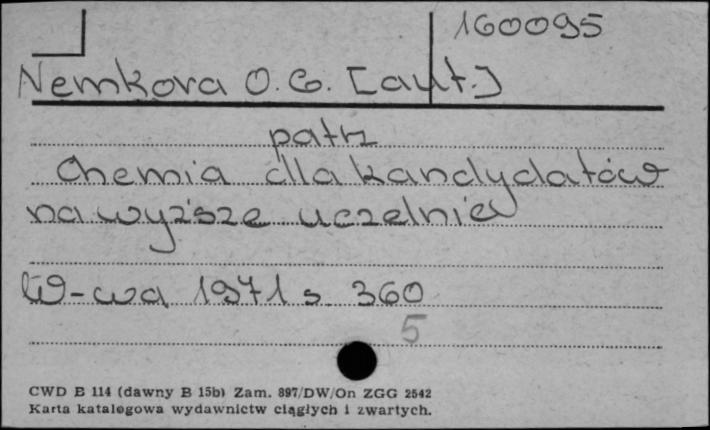 160095
Nemkova O. G. [aut.]
patrz
Chemia dla kandydatów
na wyższe uczelnie
W-wa 1971 s. 360
5
CWD B 114 (dawny B 15b) Zam. 897/DW/On ZGG 2542
Karta katalogowa wydawnictw ciągłych i zwartych.